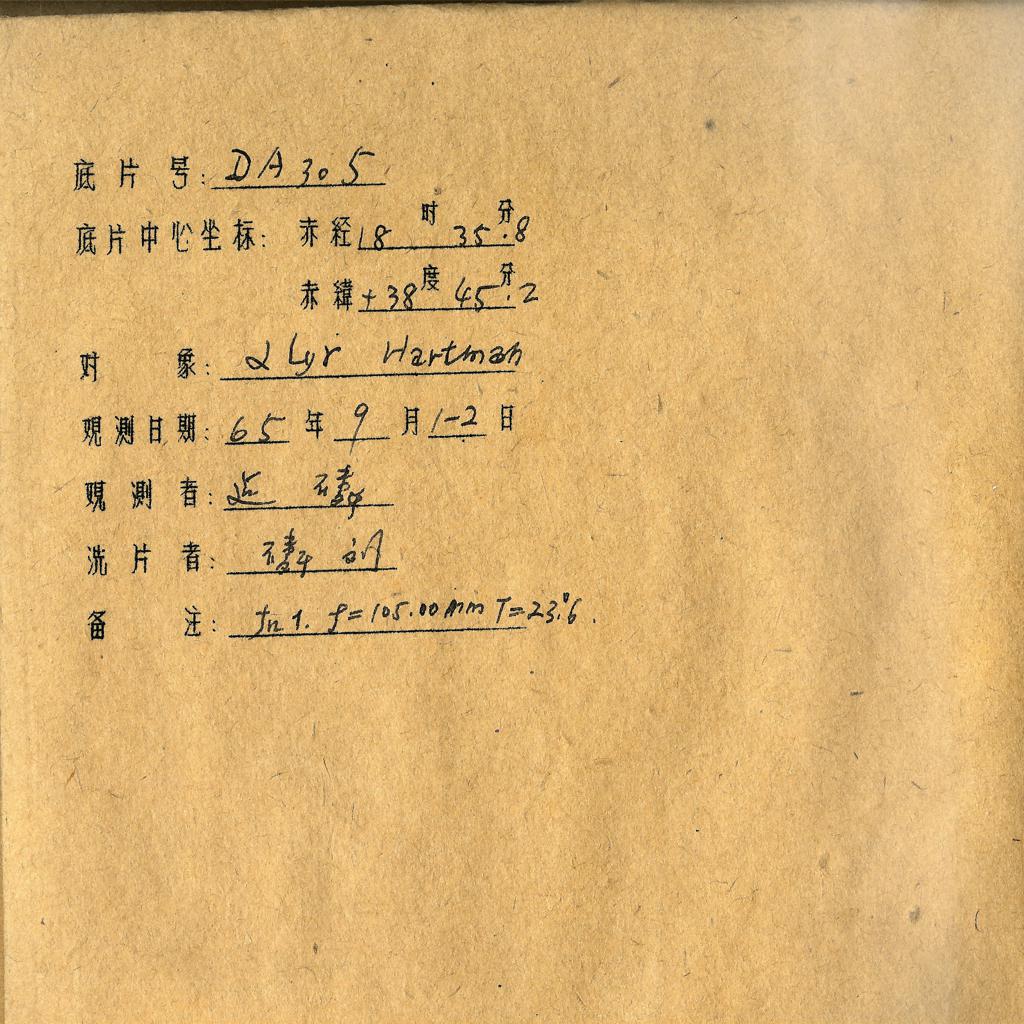 底片号: DA305
底片中心坐标: 赤经 18时 35分.8
赤緯 +38度 45分.2
对象: α Lyr Hartman
观测日期: 65年9月1-2日
观测者:
洗片者:
备注: f=105.00mm T=23°.6.